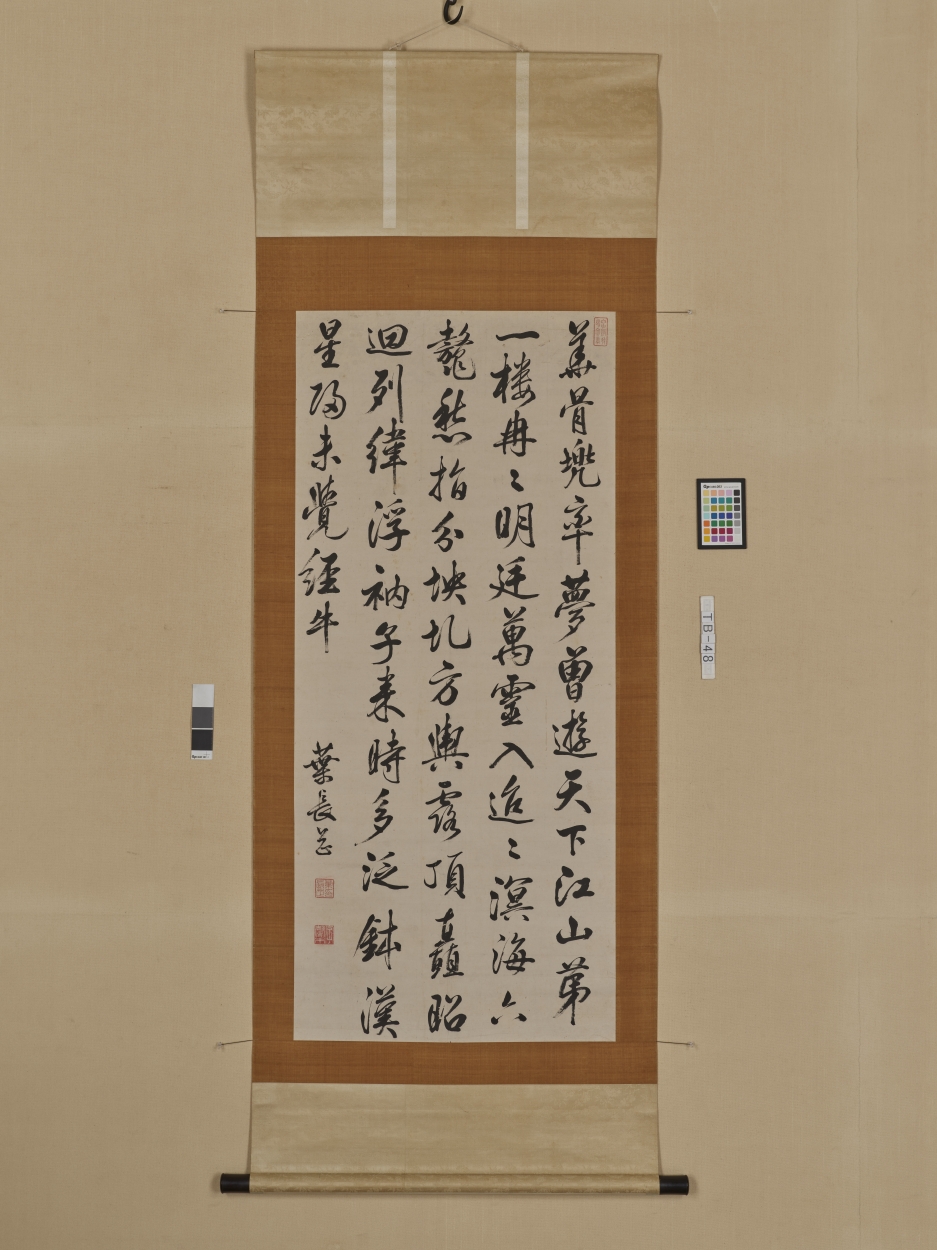 華胥兜率夢曾遊天下江山第
一楼冉〻明廷萬靈入迢〻溟海六
鼇愁指分坱圠方輿露頂矗昭
迴列緯浮衲子来時多泛鉢漢
星歸未覺經牛
葉長
TB-48